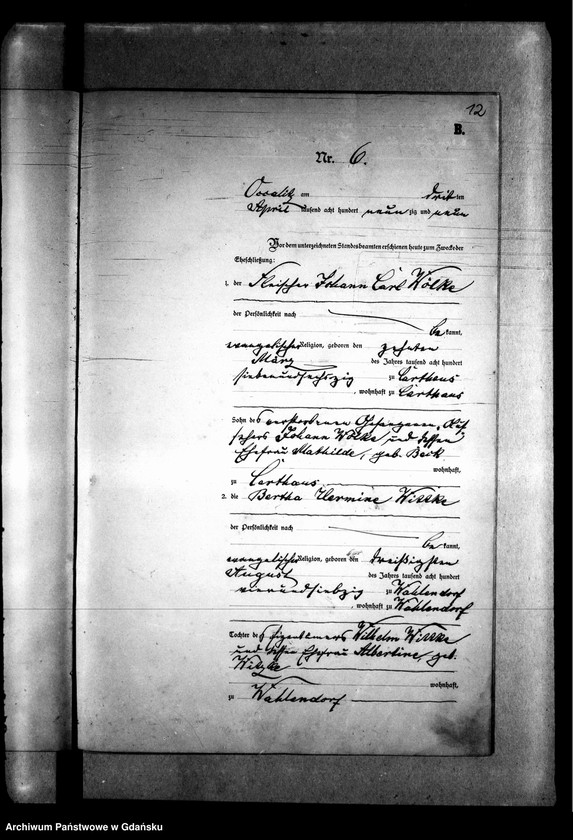 12
B.
Nr. 6.
am dritten
April tausend acht hundert neunzig und neun
Vor dem unterzeichneten Standesbeamten erschienen heute zum Zwecke der
Eheschließung:
1. der Fleischer Johann Carl Wölke
der Persönlichkeit nach
bekannt,
evangelischer Religion, geboren den zehnten
März des Jahres tausend acht hundert
siebenundsechszig zu Carthaus
, wohnhaft zu Carthaus
Sohn des verstorbenen Gefangenen, Auf
sehers Johann Wölke und dessen
Ehefrau Mathilde, geb. Beck
wohnhaft,
zu Carthaus
2. die Bertha Hermine Witzke
der Persönlichkeit nach
bekannt,
evangelischer Religion, geboren den dreißigsten
August des Jahres tausend acht hundert
vierundsiebzig zu Wahlendorf
, wohnhaft zu Wahlendorf
Tochter des Eigentümers Wilhelm Witzke
und dessen Ehefrau Albertine, geb.
Witzke
wohnhaft,
zu Wahlendorf
Archiwum Państwowe w Gdańsku